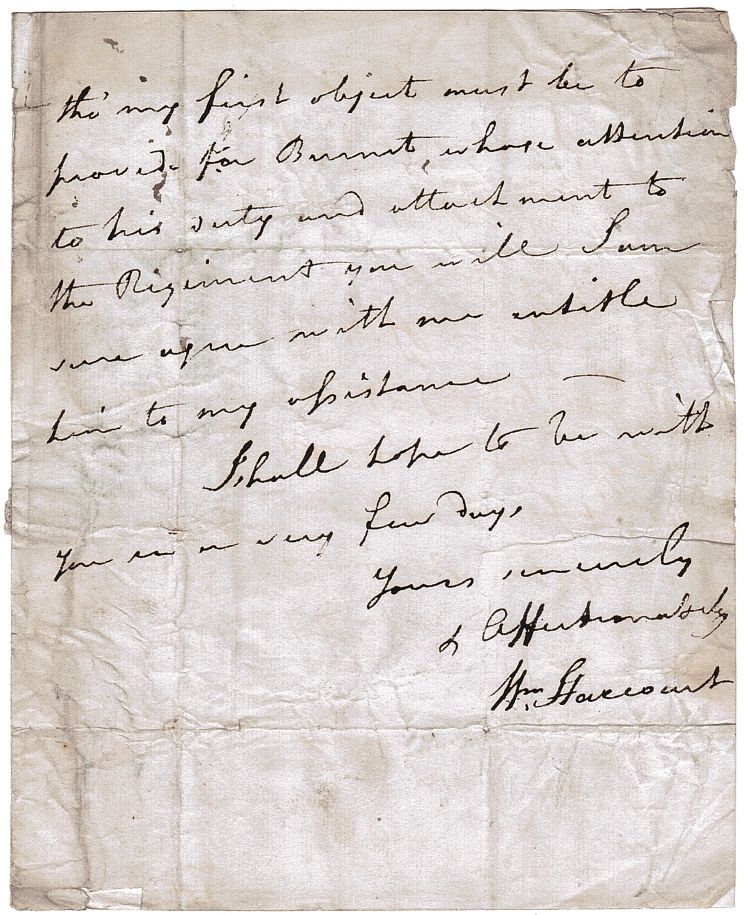 tho' my first object must be to
provide for Burnet, whose attention
to his duty and attachment to
the Regiment you will I am
sure agree with me entitle
him to my assistance —
I shall hope to be with
you in a very few days,
Yours sincerely
& Affectionately
Wm Harcourt